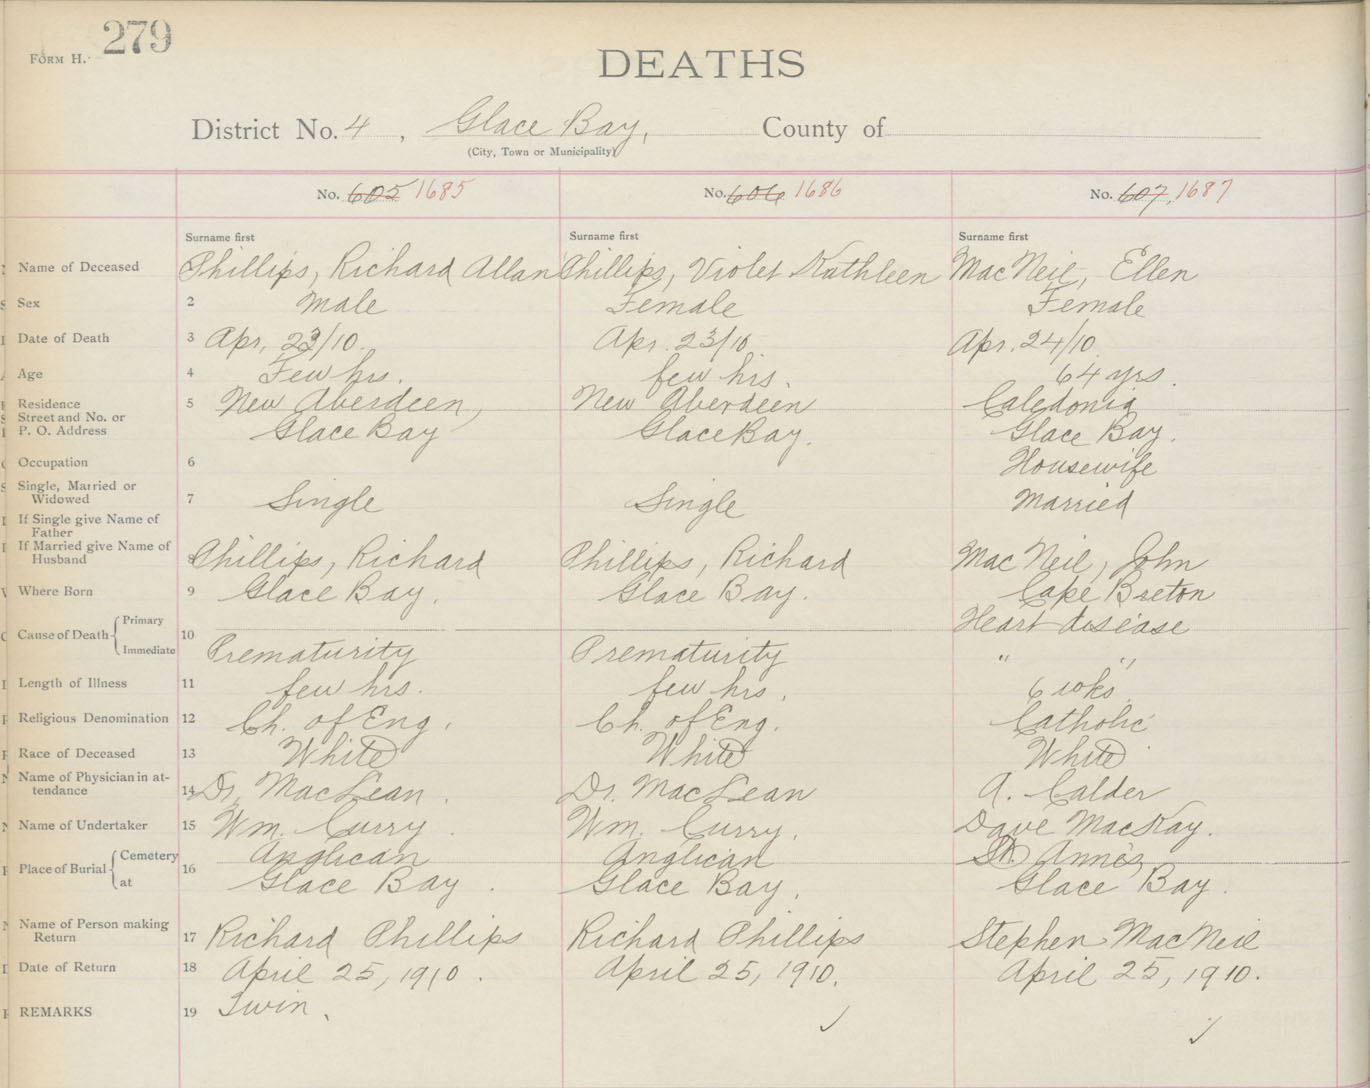 279
FORM H.
DEATHS
District No. 4, Glace Bay, County of
(City, Town or Municipality)
No. 605 1685 No. 606 1686 No. 607, 1687
Surname first Surname first Surname first
Name of Deceased Phillips, Richard Allan Phillips, Violet Kathleen MacNeil, Ellen
Sex 2 Male Female Female
Date of Death 3 Apr. 23/10. Apr. 23/10 Apr. 24/10
Age 4 Few hrs. few hrs. 64 yrs.
Residence 5 New Aberdeen, New Aberdeen Caledonia
Street and No. or
P. O. Address Glace Bay Glace Bay. Glace Bay.
Occupation 6 Housewife
Single, Married or
Widowed 7 Single Single Married
If Single give Name of
Father
If Married give Name of
Husband 8 Phillips, Richard Phillips, Richard MacNeil, John
Where Born 9 Glace Bay. Glace Bay. Cape Breton
Cause of Death Primary 10 Heart disease
Immediate Prematurity Prematurity " "
Length of Illness 11 few hrs. few hrs. 6 wks.
Religious Denomination 12 Ch. of Eng. Ch. of Eng. Catholic
Race of Deceased 13 White White White
Name of Physician in at-
tendance 14 Dr. MacLean. Dr. MacLean A. Calder
Name of Undertaker 15 Wm. Curry. Wm. Curry. Dave MacKay.
Place of Burial Cemetery 16 Anglican Anglican St. Anne's
at Glace Bay. Glace Bay. Glace Bay.
Name of Person making
Return 17 Richard Phillips Richard Phillips Stephen MacNeil
Date of Return 18 April 25, 1910. April 25, 1910. April 25, 1910.
REMARKS 19 Twin.